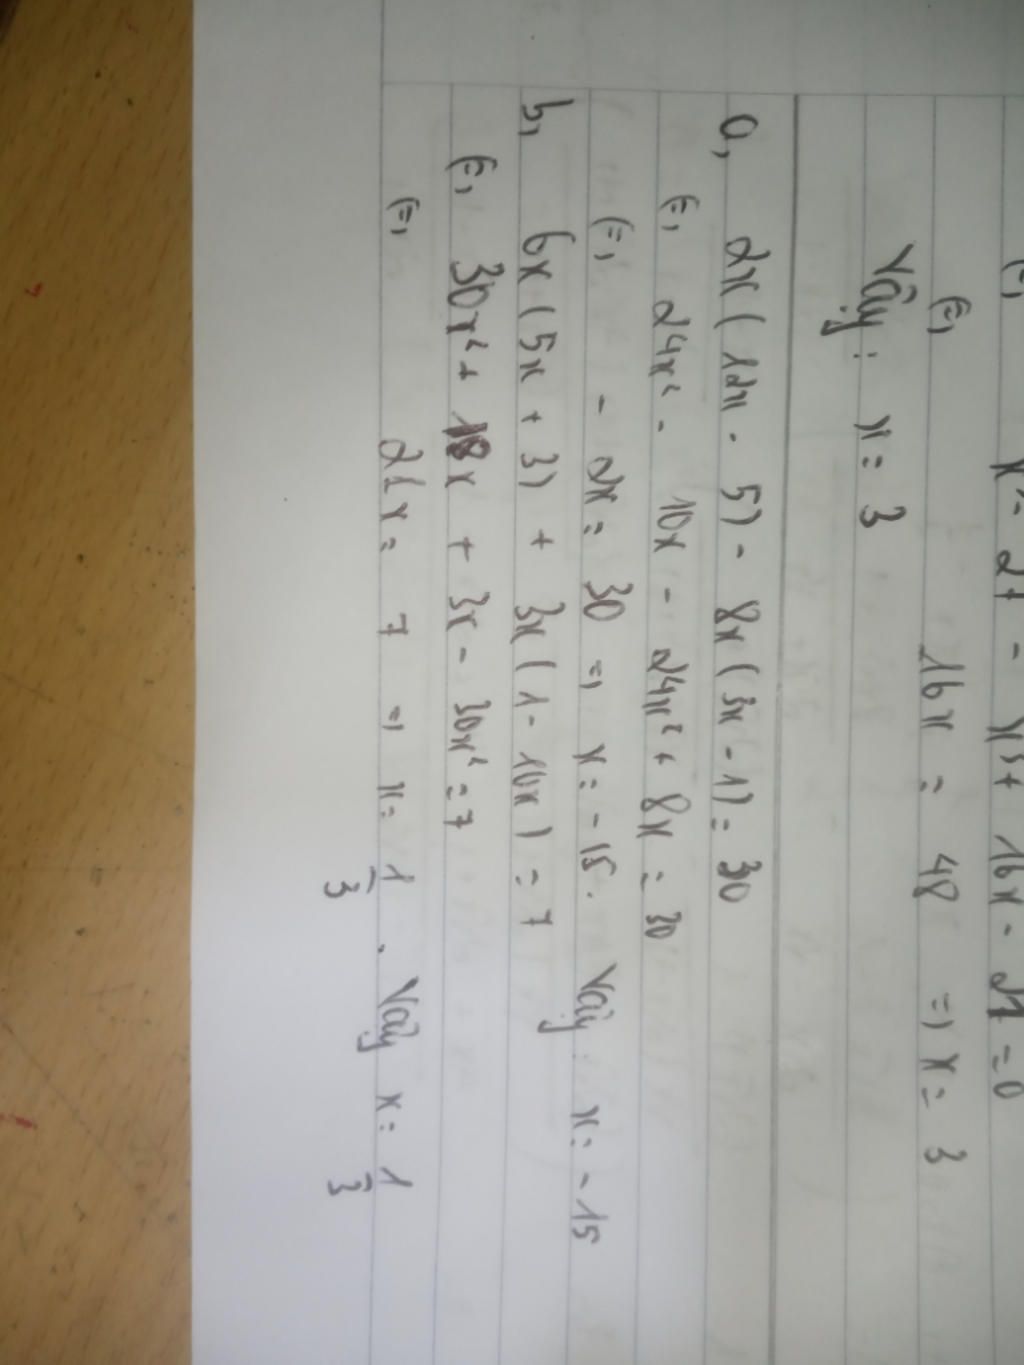 x³ - 27 - x³ + 16x - 21 = 0
(=) 16x = 48 =) x = 3
Vậy : x = 3
a, 2x ( 12x - 5) - 8x ( 3x - 1) = 30
(=) 24x² - 10x - 24x² + 8x = 30
(=) - 2x = 30 =) x = - 15 . Vậy x = - 15
b, 6x ( 5x + 3) + 3x ( 1 - 10x ) = 7
(=) 30x² + 18x + 3x - 30x² = 7
(=) 21x = 7 =) x = 1/3 . Vậy x = 1/3